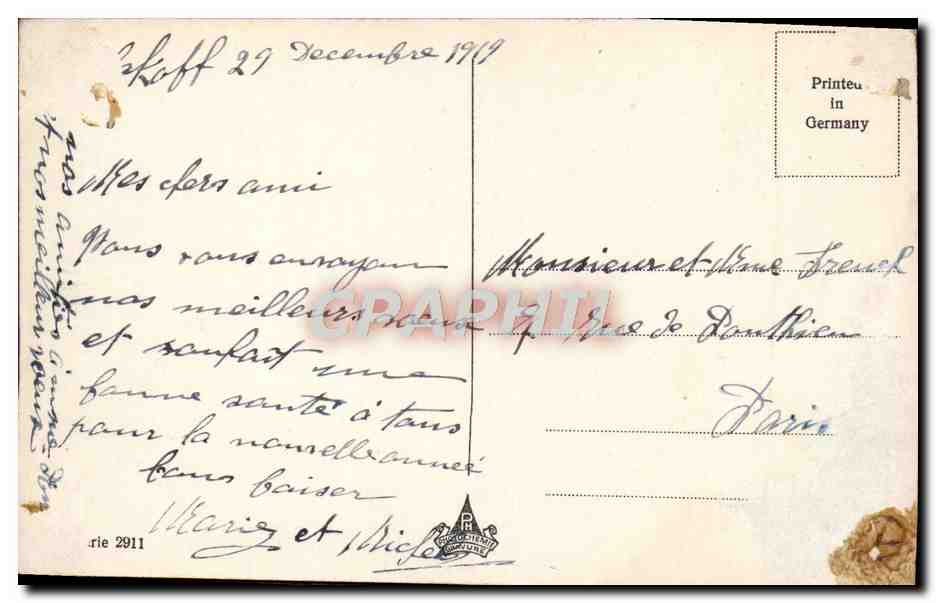 koff 29 Decembre 1919
Mes chers ami
Nous vous envoyon
nos meilleurs voeux
et soufait une
bonne santé à tous
pour la nouvelle anneé
bons baiser
Marie et Michel
nos amitiés
+ nos meilleur voeux
Printed
in
Germany
Monsieur et Mme Frenck
7 Rue de Ponthieu
Paris
rie 2911
PH
PHOTOCHEMIE
GRAVURE
CRAPHIL